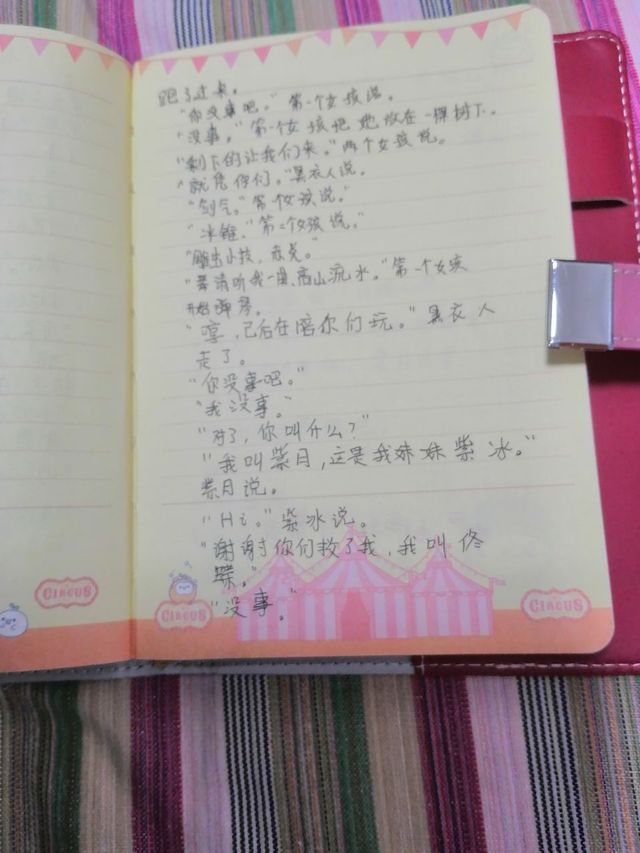 跑了过来。
"你没事吧。"第一个女孩说。
"没事。"第一个女孩把她放在一棵树下。
"剩下的让我们来。"两个女孩说。
"就凭你们。"黑衣人说。
"剑气。"第一个女孩说。"
"冰锥。"第二个女孩说。"
"雕虫小技,赤炎。"
"请听我一曲,高山流水。"第一个女孩
开始弹琴。
"哼,已后在陪你们玩。"黑衣人
走了。
"你没事吧。"
"我没事。"
"对了,你叫什么?"
"我叫紫月,这是我妹妹紫冰。"
紫月说。
"Hi。"紫冰说。
"谢谢你们救了我,我叫佟
"没事。"
CIRCUS
CIRCUS
CIRCUS